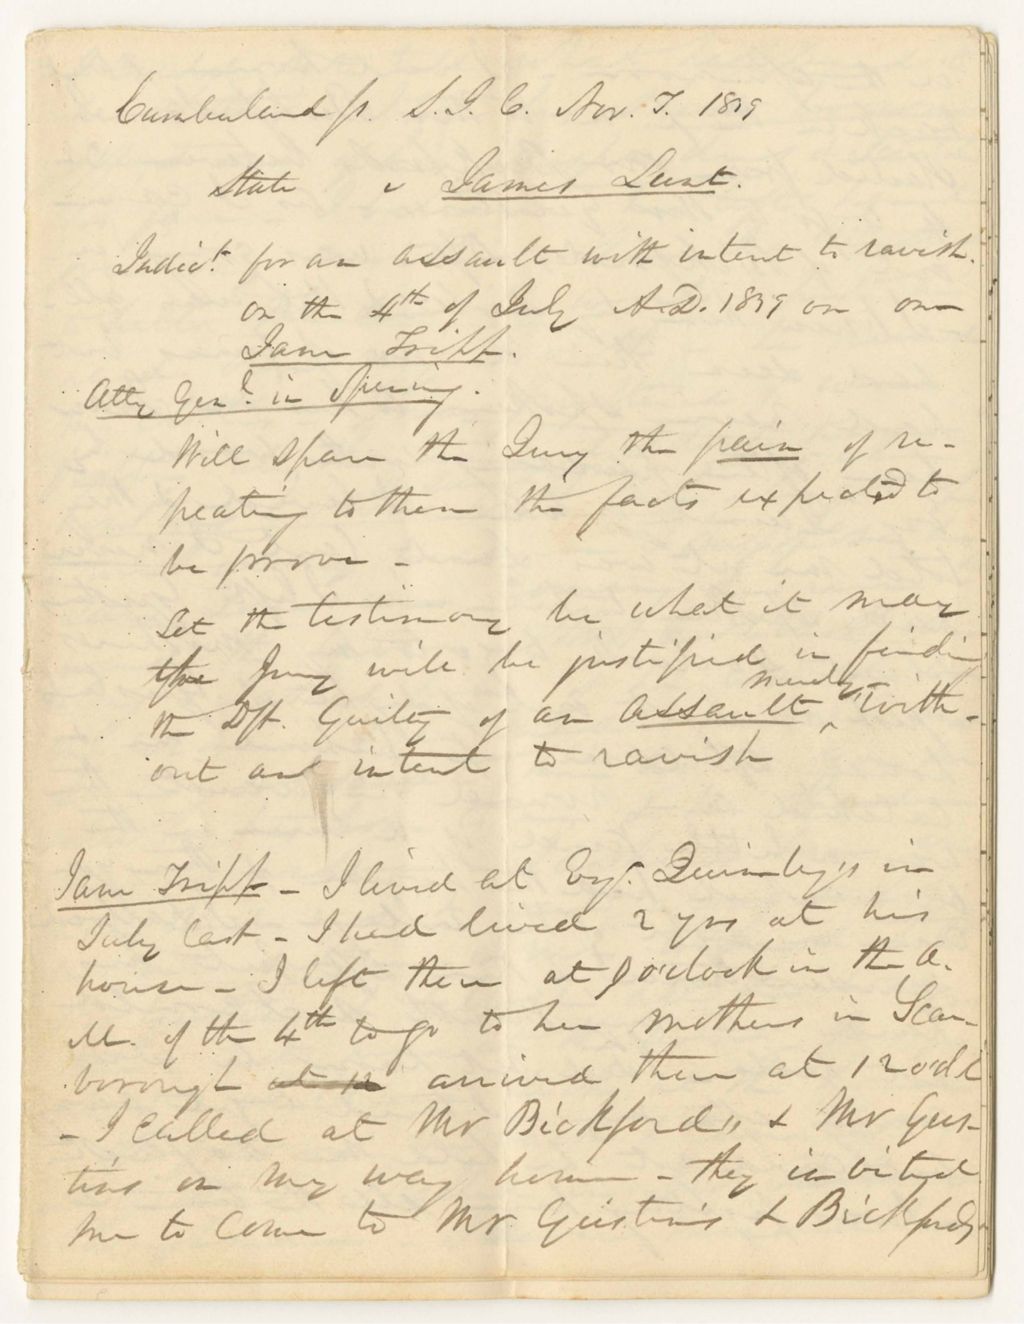 Cumberland ss. S. J. C. Nov. T. 1839
State v James Lunt.
Indict. for an assault with intent to ravish.
on the 4th of July A.D. 1839 on one
Jane Tripp.
Atty Genl. in opening.
Will spare the Jury the pain of re-
peating to them the facts expected to
be prove -
Let the testimony be what it may
the Jury will be justified in finding
the Dft. Guilty of an assault merely with-
out an intent to ravish
Jane Tripp - I lived at Quimbys in
July last - I had lived 2 yrs at his
house - I left there at o'clock in the A.
M. of the 4th to go to her mothers in Scar-
borough at 12 arrived there at 12 o'cl
- I called at Mr Bickfords & Mr Gus-
tins on my way home - they invited
me to come to Mr. Gustins & Bickfords